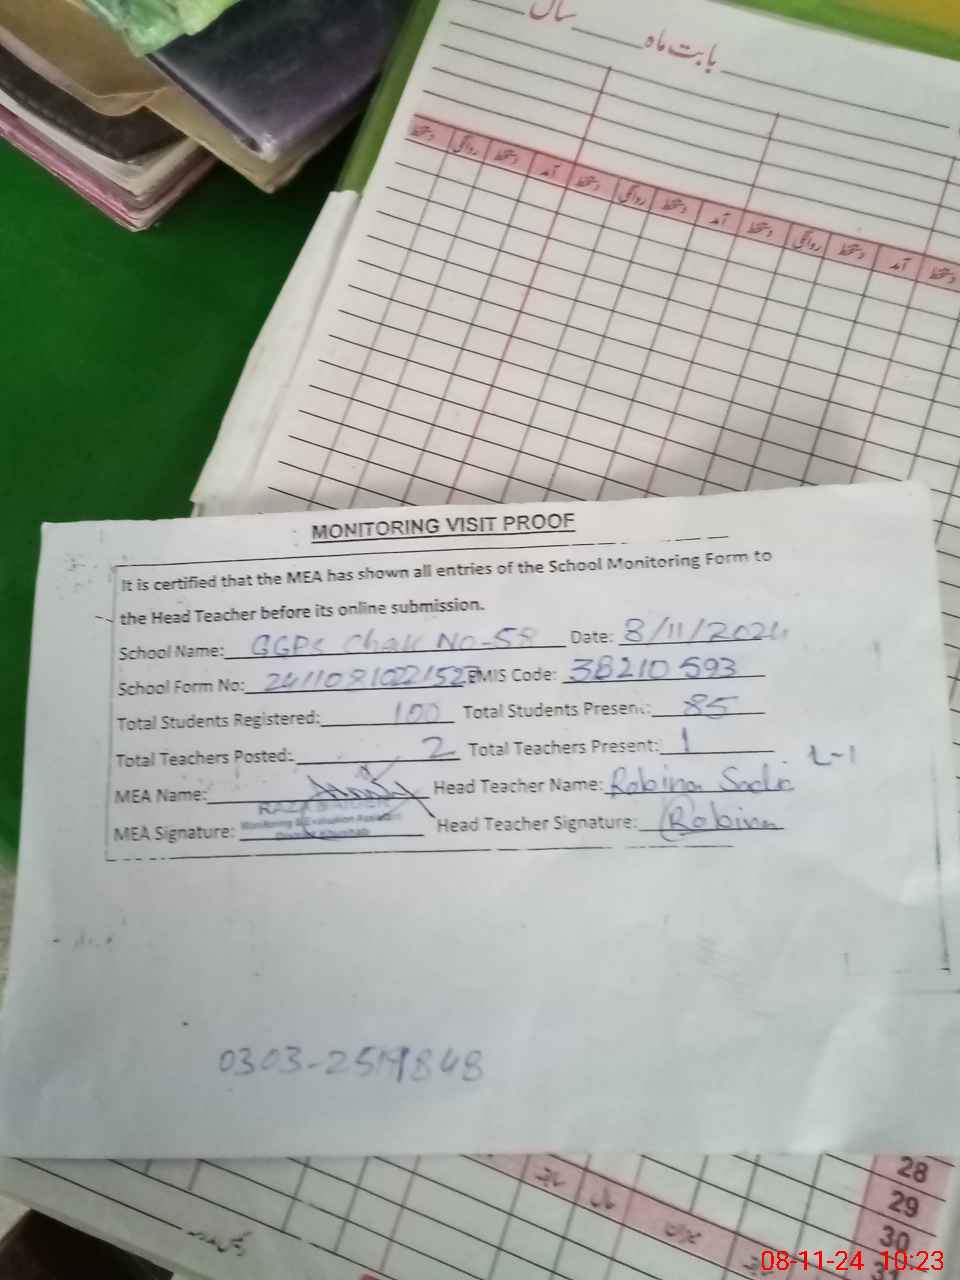 بابت ماہ سال
دستخط روانگی دستخط آمد دستخط روانگی دستخط آمد دستخط روانگی دستخط آمد دستخط
MONITORING VISIT PROOF
It is certified that the MEA has shown all entries of the School Monitoring Form to
the Head Teacher before its online submission.
School Name: GGPS Chak No-58 Date: 8/11/2024
School Form No: EMIS Code: 38210593
Total Students Registered: 100 Total Students Present: 85
Total Teachers Posted: 2 Total Teachers Present: 1
L-1
MEA Name: Head Teacher Name: Robina
Monitoring & Evaluation Assistant
MEA Signature: Head Teacher Signature: Robina
28
29
30
سابقہ حال میزان
08-11-24 10:23